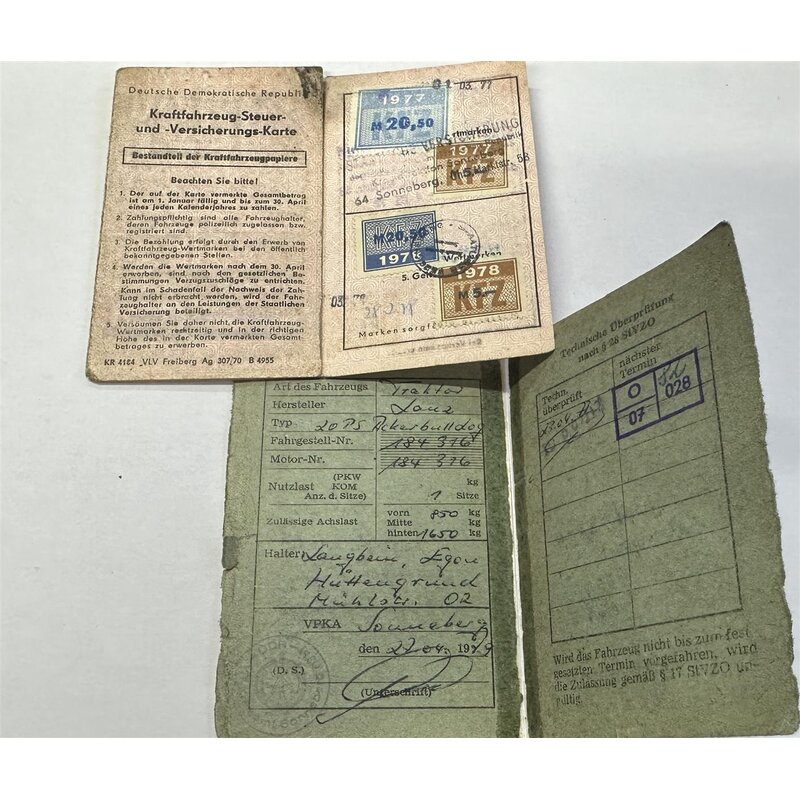 Deutsche Demokratische Republik
Kraftfahrzeug-Steuer-
und -Versicherungs-Karte
Bestandteil der Kraftfahrzeugpapiere
Beachten Sie bitte!
1. Der auf der Karte vermerkte Gesamtbetrag
ist am 1. Januar fällig und bis zum 30. April
eines jeden Kalenderjahres zu zahlen.
2. Zahlungspflichtig sind alle Fahrzeughalter,
deren Fahrzeuge polizeilich zugelassen bzw.
registriert sind.
3. Die Bezahlung erfolgt durch den Erwerb von
Kraftfahrzeug-Wertmarken bei den öffentlich
bekanntgegebenen Stellen.
4. Werden die Wertmarken nach dem 30. April
erworben, sind nach den gesetzlichen Be-
stimmungen Verzugszuschläge zu entrichten.
Kann im Schadenfall der Nachweis der Zah-
lung nicht erbracht werden, wird der Fahr-
zeughalter an den Leistungen der Staatlichen
Versicherung beteiligt.
5. Versäumen Sie daher nicht, die Kraftfahrzeug-
Wertmarken rechtzeitig und in der richtigen
Höhe des in der Karte vermerkten Gesamt-
betrages zu erwerben.
KR 4184 VLV Freiberg Ag 307/70 B 4955
01. 03. 77
1977
M 20,50
rtmarken
1977
KFZ
64 Sonneberg,
1978
Wertmarken
1978
KFZ
M 5,-
Marken sorgf
Art des Fahrzeugs Traktor
Hersteller Lanz
Typ 20 PS Ackerbulldog
Fahrgestell-Nr. 184 376
Motor-Nr. 184 376
Nutzlast (PKW
KOM
Anz. d. Sitze) kg
1 Sitze
Zulässige Achslast vorn 850 kg
Mitte kg
hinten 1650 kg
Halter Langbein, Egon
Hüttengrund
Mühlstr. 02
VPKA Sonneberg
den 27.04. 1979
(D. S.)
(Unterschrift)
Technische Überprüfung
nach § 28 StVZO
Techn.
überprüft
nächster
Termin
0
07
028
Wird das Fahrzeug nicht bis zum fest-
gesetzten Termin vorgefahren, wird
die Zulassung gemäß § 17 StVZO un-
gültig.